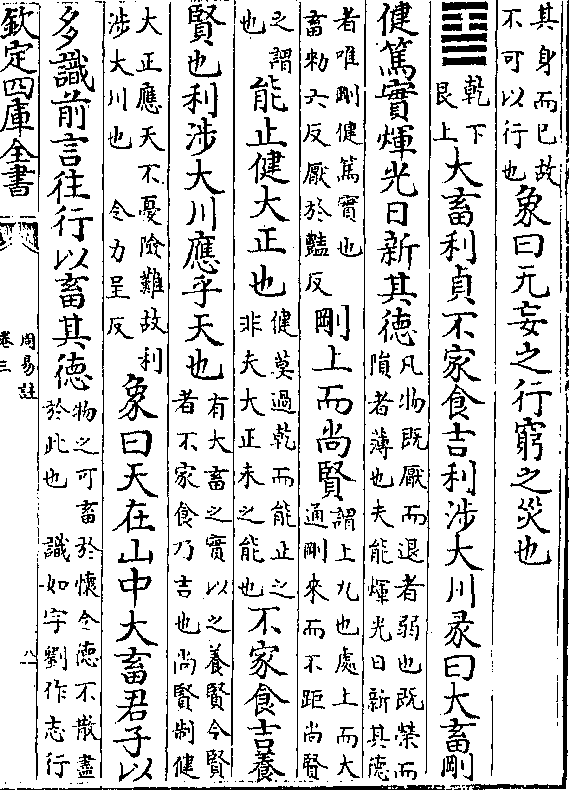 其身而已故
不可以行也
象曰无妄之行窮之災也
䷙
乾下
艮上
大畜利貞不家食吉利涉大川彖曰大畜剛
健篤實煇光日新其德
凡物既厭而退者弱也既榮而
隕者薄也夫能煇光日新其德
者唯剛健篤實也
畜勑六反厭於豔反
剛上而尚賢
謂上九也處上而大
通剛來而不距尚賢
之謂
也
能止健大正也
健莫過乾而能止之
非夫大正未之能也
不家食吉養
賢也利涉大川應乎天也
有大畜之實以之養賢令賢
者不家食乃吉也尚賢制健
大正應天不憂險難故利
涉大川也 令力呈反
象曰天在山中大畜君子以
多識前言往行以畜其德
物之可畜於懷令德不散盡
於此也 識如字劉作志行
欽定四庫全書
周易註
卷三
八